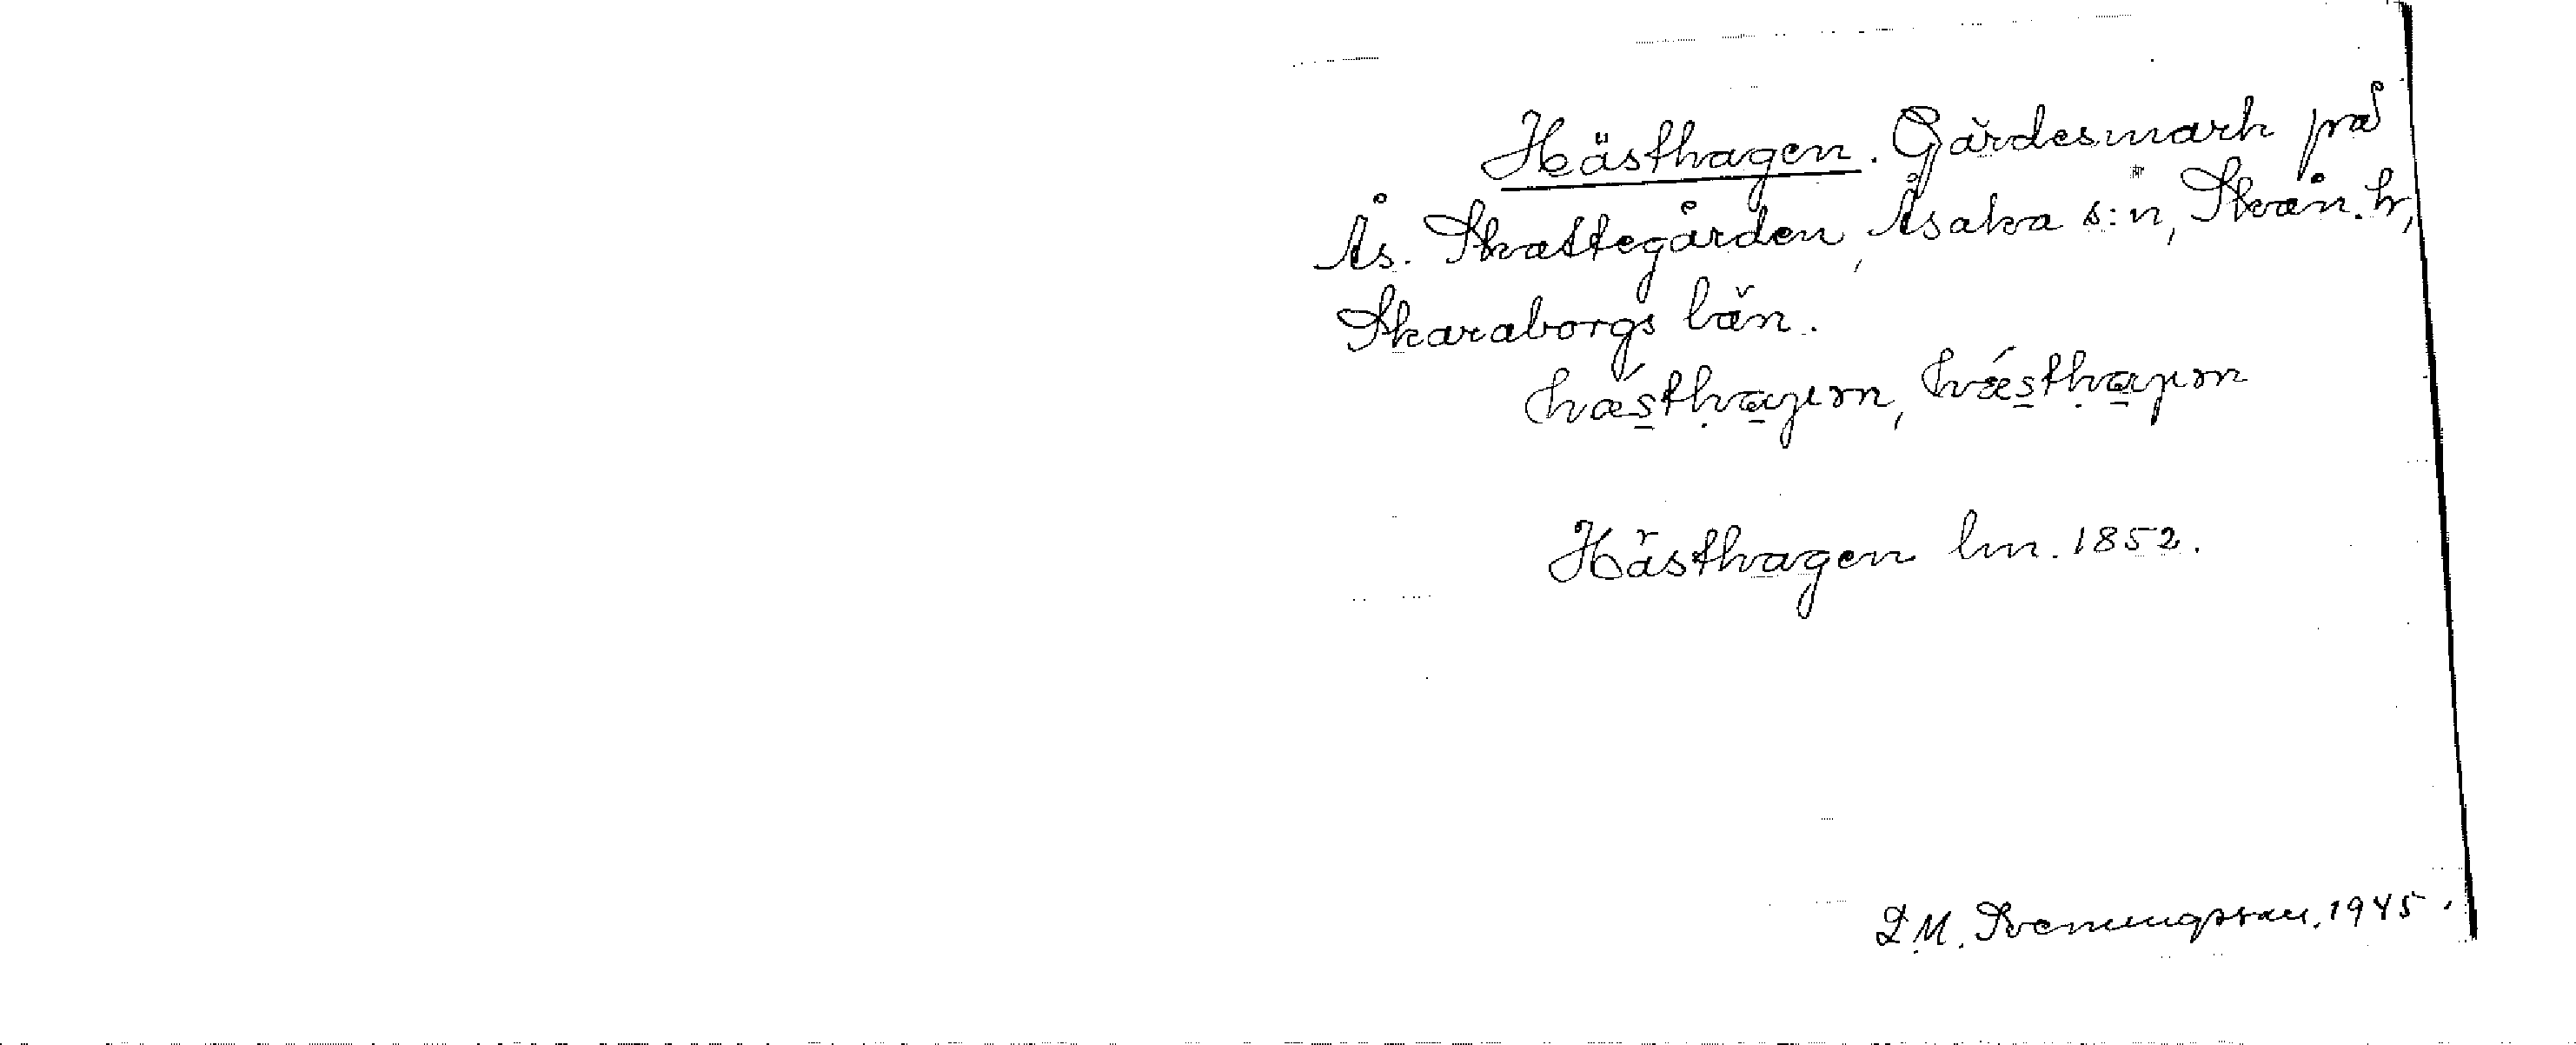 Hästhagen. Gärdesmark på
Ås. Skattegården, Åsaka s:n, Skån. h,
Skaraborgs län.
Hästhagen lm. 1852.
L.M. Svenungsson. 1945.